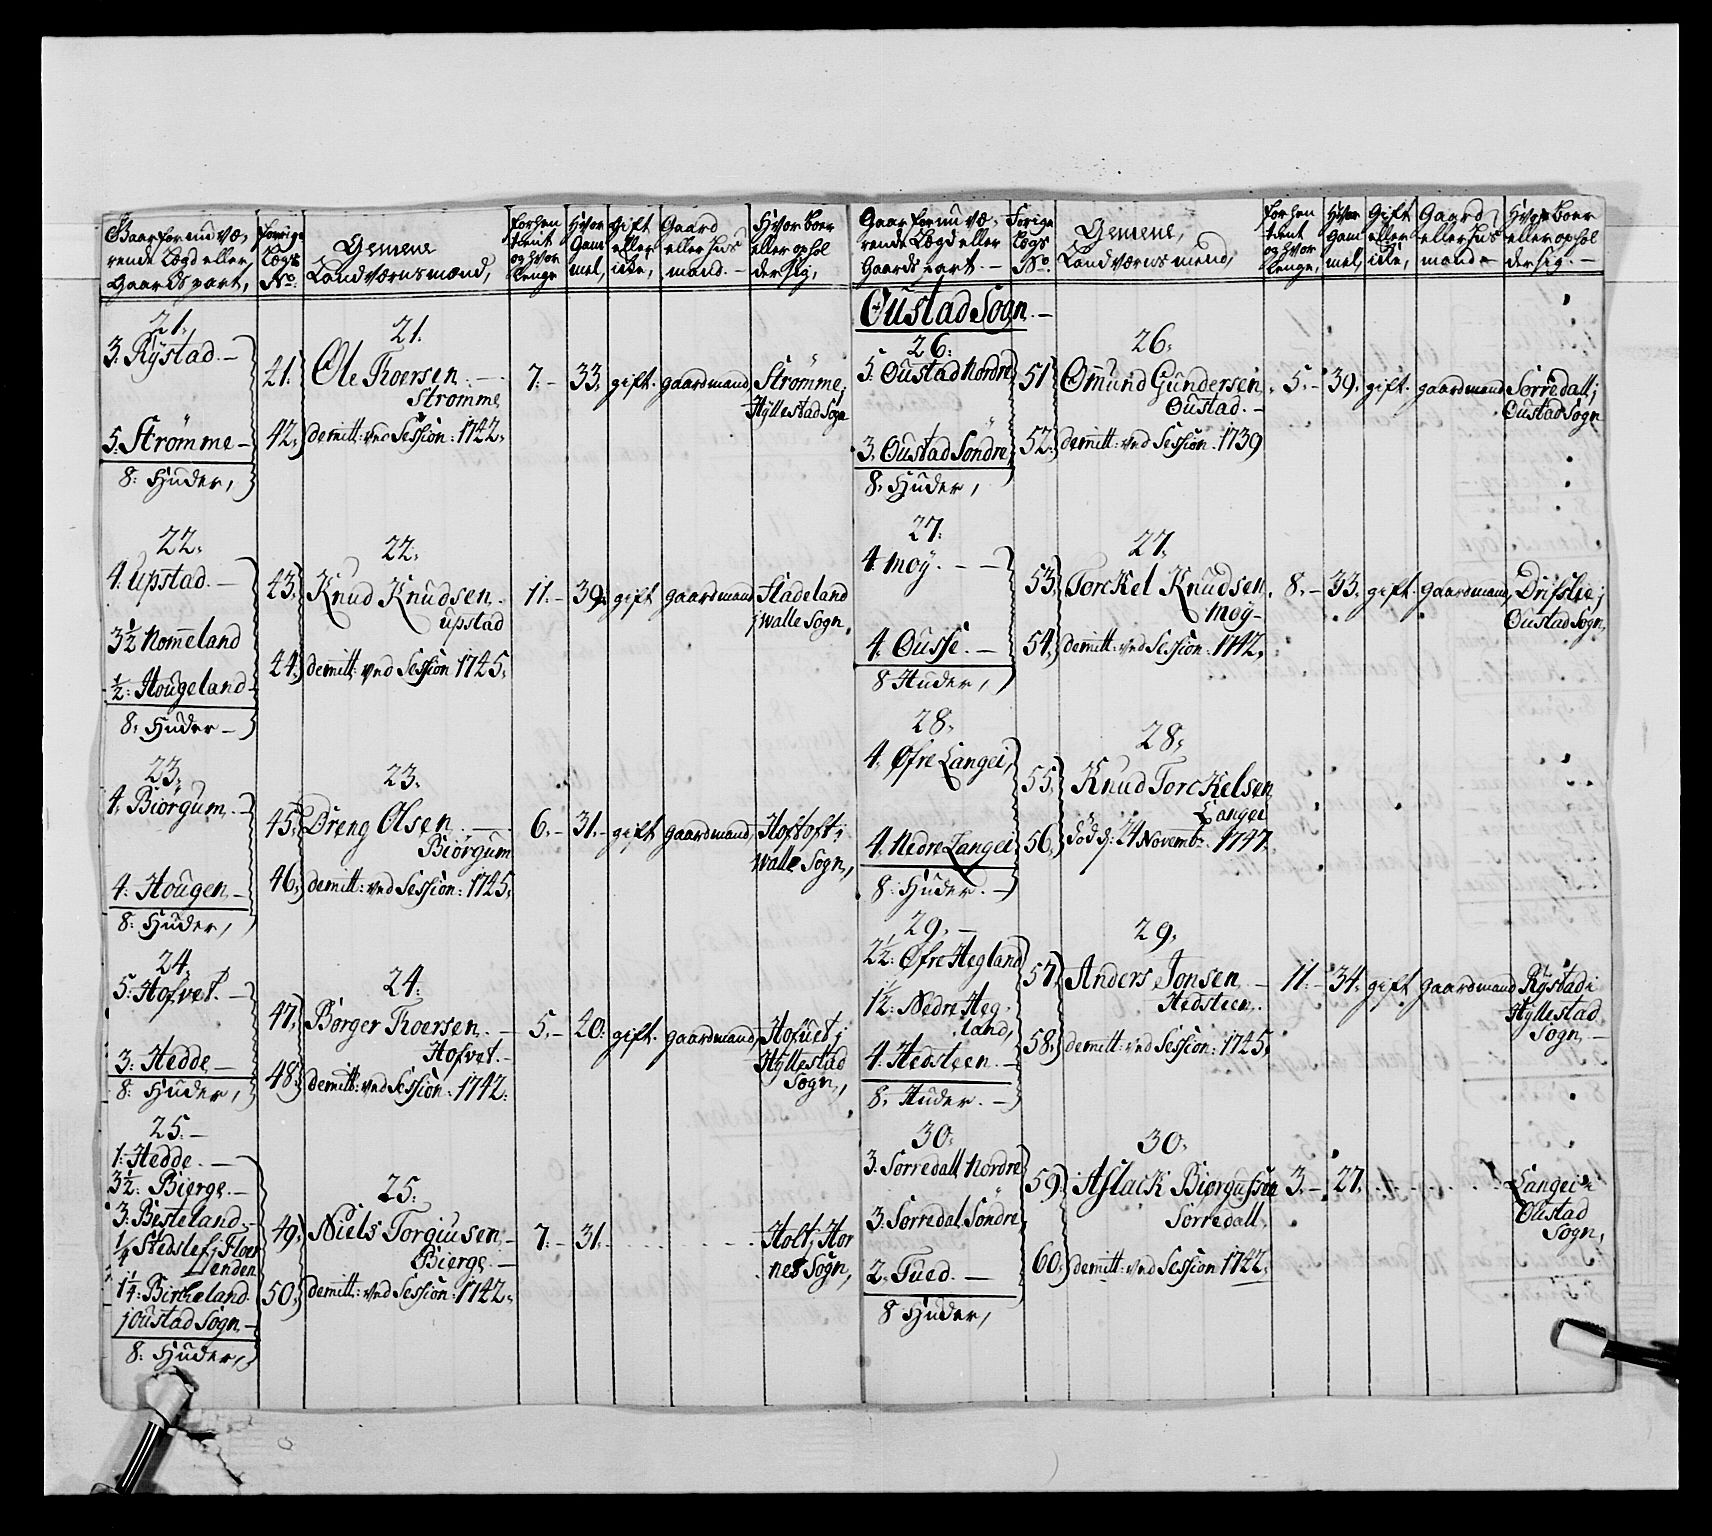 Gaar for nu væ-
rende Lægd eller
Gaards part,
Forrige
Lægs
No:
Gemene
Landværns mænd,
forhen
tient
og hvor
lenge
Hvor
Gam
mel,
Gift
eller
icke,
Gaard
eller huus
mand. -
Hvor boer
eller ophol
der sig,
21.
3. Rÿstad. -
5. Strömme -
8: Huder,
21.
41. Ole Thoersen. -
Strömme
42. demitt: ved Session: 1742.
7. - 33. gift. gaardmand, Strömme i
Hÿllestad Sogn
22.
4. Upstad. -
3½ Nomeland
½: Hougeland -
8: Huder -
22.
43. Knud Knudsen
upstad
44. demitt: ved Session 1745.
11. - 39. gift gaardmand Fladeland
j Walle Sogn,
23.
4. Biörgum. -
4. Hougen. -
8: Huder,
23.
45. Dreng Olsen. -
Biörgum
46. demitt: ved Session: 1745.
6. - 31. - gift gaardmand, Hoftoft i
Walle Sogn,
24.
5. Hofvet. -
3: Hedde -
8: Huder,
24.
47. Börger Thoersen. -
Hofvet. -
48. demitt: ved Session: 1742:
5. - 20: gift. gaardmand, Hofuet i
Hÿllestad
Sogn,
25. -
1: Hedde. -
3½: Bierge. -
3: Besteland. -
¼ Stedslef: Floer
enden
1¼: Bircheland
j Oustad Sogn -
8: Huder,
25.
49. Niels Torgiusen. -
Bierge. -
50. demitt: ved Session: 1742.
7. - 31. Holt, Hor
nes Sogn,
Gaar for nu væ-
rende Lægd eller
Gaards part. -
Forige
Lægs
No.
Gemene,
Landværns mend,
forhen
tient
og hvor
lenge,
Hvor
Gam
mel,
Gift
eller
icke,
Gaard
eller huus
mand -
Hvor boer
eller ophol
der sig. -
Oustad Sogn. -
26.
5. Oustad Nordre
3. Oustad Söndre
8. Huder,
26.
51 Omund Gundersen
Oustad. -
52. demitt: ved Session. 1739
5. - 39. gift. gaardmand Sorredall i
Oustad Sogn
27.
4. Moÿ. - -
4. Ousse. -
8 Huder,
27.
53. Torckel Knudsen
Moÿ -
54. demitt: ved Session. 1742.
8. - 33. gift. Gaardmand, Drifslie i
Oustad Sogn,
28.
4. Øfre Langei,
4. Nedre Langei
8: Huder. -
28.
55. Knud Torckelsen
Langei
56. död d: 24 Novembr. 1747.
29. -
2½: Øfre Hegland
1½: Nedre Heg-
land,
4. Hedsteen. -
8. Huder. -
29.
57. Anders Jonsen -
Hedsteen. -
58. demitt: ved Session: 1745.
11. - 34. gift gaardmand Rÿstad i
Hÿllestad
Sogn, -
30.
3. Sorredall Nordre
3. Sorredal Söndre
2. Tued. -
8 Huder,
30.
59. Aslack Biörgufssen
Sorredall.
60. demitt: ved Session 1742.
3. - 27. Langei i
Oustad
Sogn,